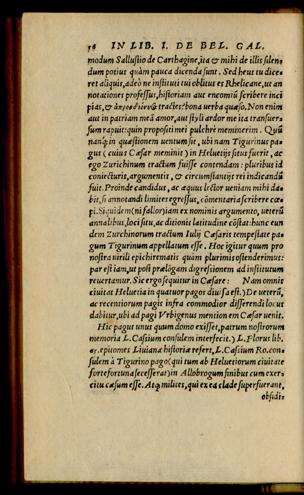 56 IN LIB. I. DE BEL. GAL.
modum Sallustio de Carthagine, ita & mihi de illis silen-
dum potius quàm pauca dicenda sunt. Sed heus tu dice-
ret aliquis, adeò ne instituti tui oblitus es Rhelicane, ut an
notationes professus, historiam aut encomiũ scribere inci
pias, & tractes? bona uerba quæso. Non enim
aut in patriam meã amor, aut styli ardor me ita transuer-
sum rapuit: quin propositi mei pulchrè meminerim. Quũ
nanq; in quæstionem uenum sit, ubi nam Tigurinus pa-
gus (cuius Cæsar meminit) in Heluetijs situs fuerit, ac
ego Zurichinum tractum fuisse contendam: pluribus id
coniecturis, argumentis, & circumstantijs rei indicandũ
fuit. Proinde candidus, ac æquus lector ueniam mihi da-
bit, si annotandi limites egressus, cõmentaria scribere cœ-
pi. Siquidem (ni fallor) iam ex nominis argumento, ueterũ
annalibus, loci situ, ac ditionis latitudine cõstat: hunc eun
dem Zurchinorum tractum Iulij Cæsaris tempestate pa-
gum Tigurinum appellatum esse. Hoc igitur quum pro
nostra uirili epichirematis quàm plurimis ostenderimus:
par est iam, ut post prælogam digressionem ad institutum
reuertamur. Sic ergo sequitur in Cæsare: Nam omnis
ciuitas Heluetia in quatuor pagos diuisa est.) De ueterũ,
ac recentiorum pagis infra commodior differendi locus
dabitur, ubi ad pagi Vrbigenus mentionem Cæsar uenit.
Hic pagus unus quum domo exisset, patrum nostrorum
memoria L. Cassium consulem interfecit.) L. Florus lib.
epitomes Liuianæ historiæ refert, L. Cassium Ro. consu-
sulem à Tigurino pago (qui tum ab Heluetiorum ciuitate
fortè fortuna secesserat) in Allobrogum finibus cum exer-
citu cæsum esse. Atq; milites, qui ex ea clade superfuerant,
obsidi-